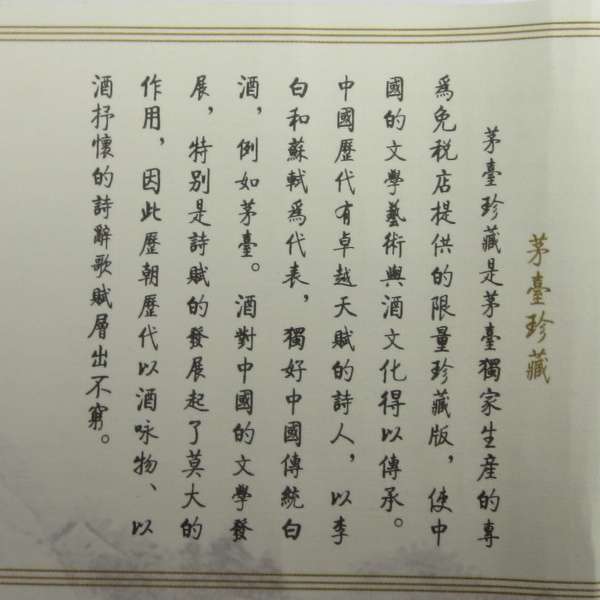 茅臺珍藏
茅臺珍藏是茅臺獨家生産的專
爲免税店提供的限量珍藏版，使中
國的文學藝術與酒文化得以傳承。
中國歷代有卓越天賦的詩人，以李
白和蘇軾爲代表，獨好中國傳統白
酒，例如茅臺。酒對中國的文學發
展，特别是詩賦的發展起了莫大的
作用，因此歷朝歷代以酒咏物、以
酒抒懷的詩辭歌賦層出不窮。